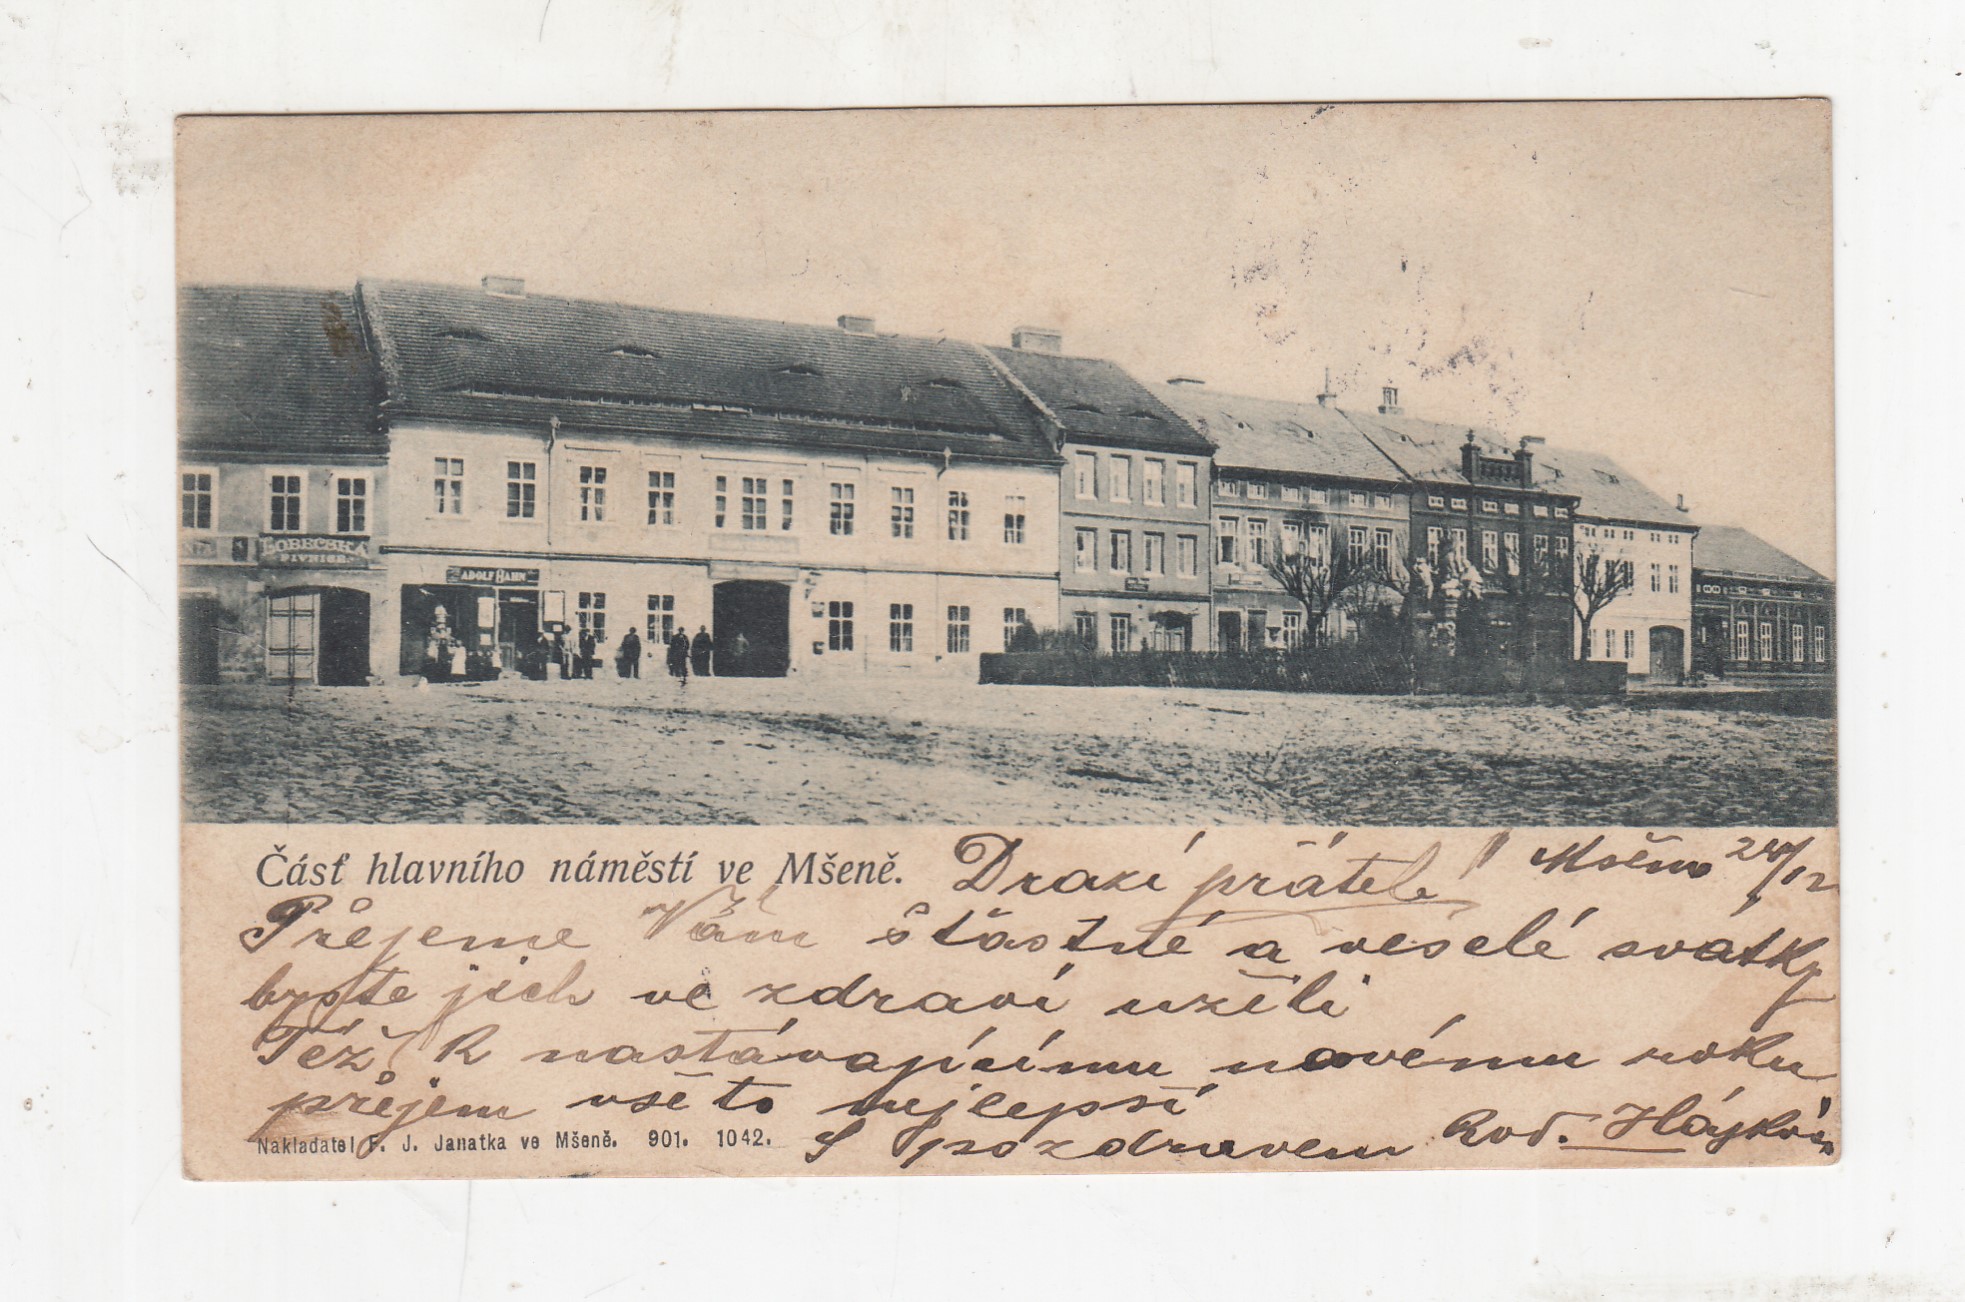 LOBEČSKÁ
PIVNICE.
ADOLF BAHN
Část hlavního náměstí ve Mšeně.
Drazí přátelé! Mšeno 24/12
Přejeme Vám šťastné a veselé svátky
byste jich ve zdraví užili
Též k nastávajícímu novému roku
přejem vše to nejlepší
S pozdravem Rod. Hájkova
Nakladatel F. J. Janatka ve Mšeně. 901. 1042.